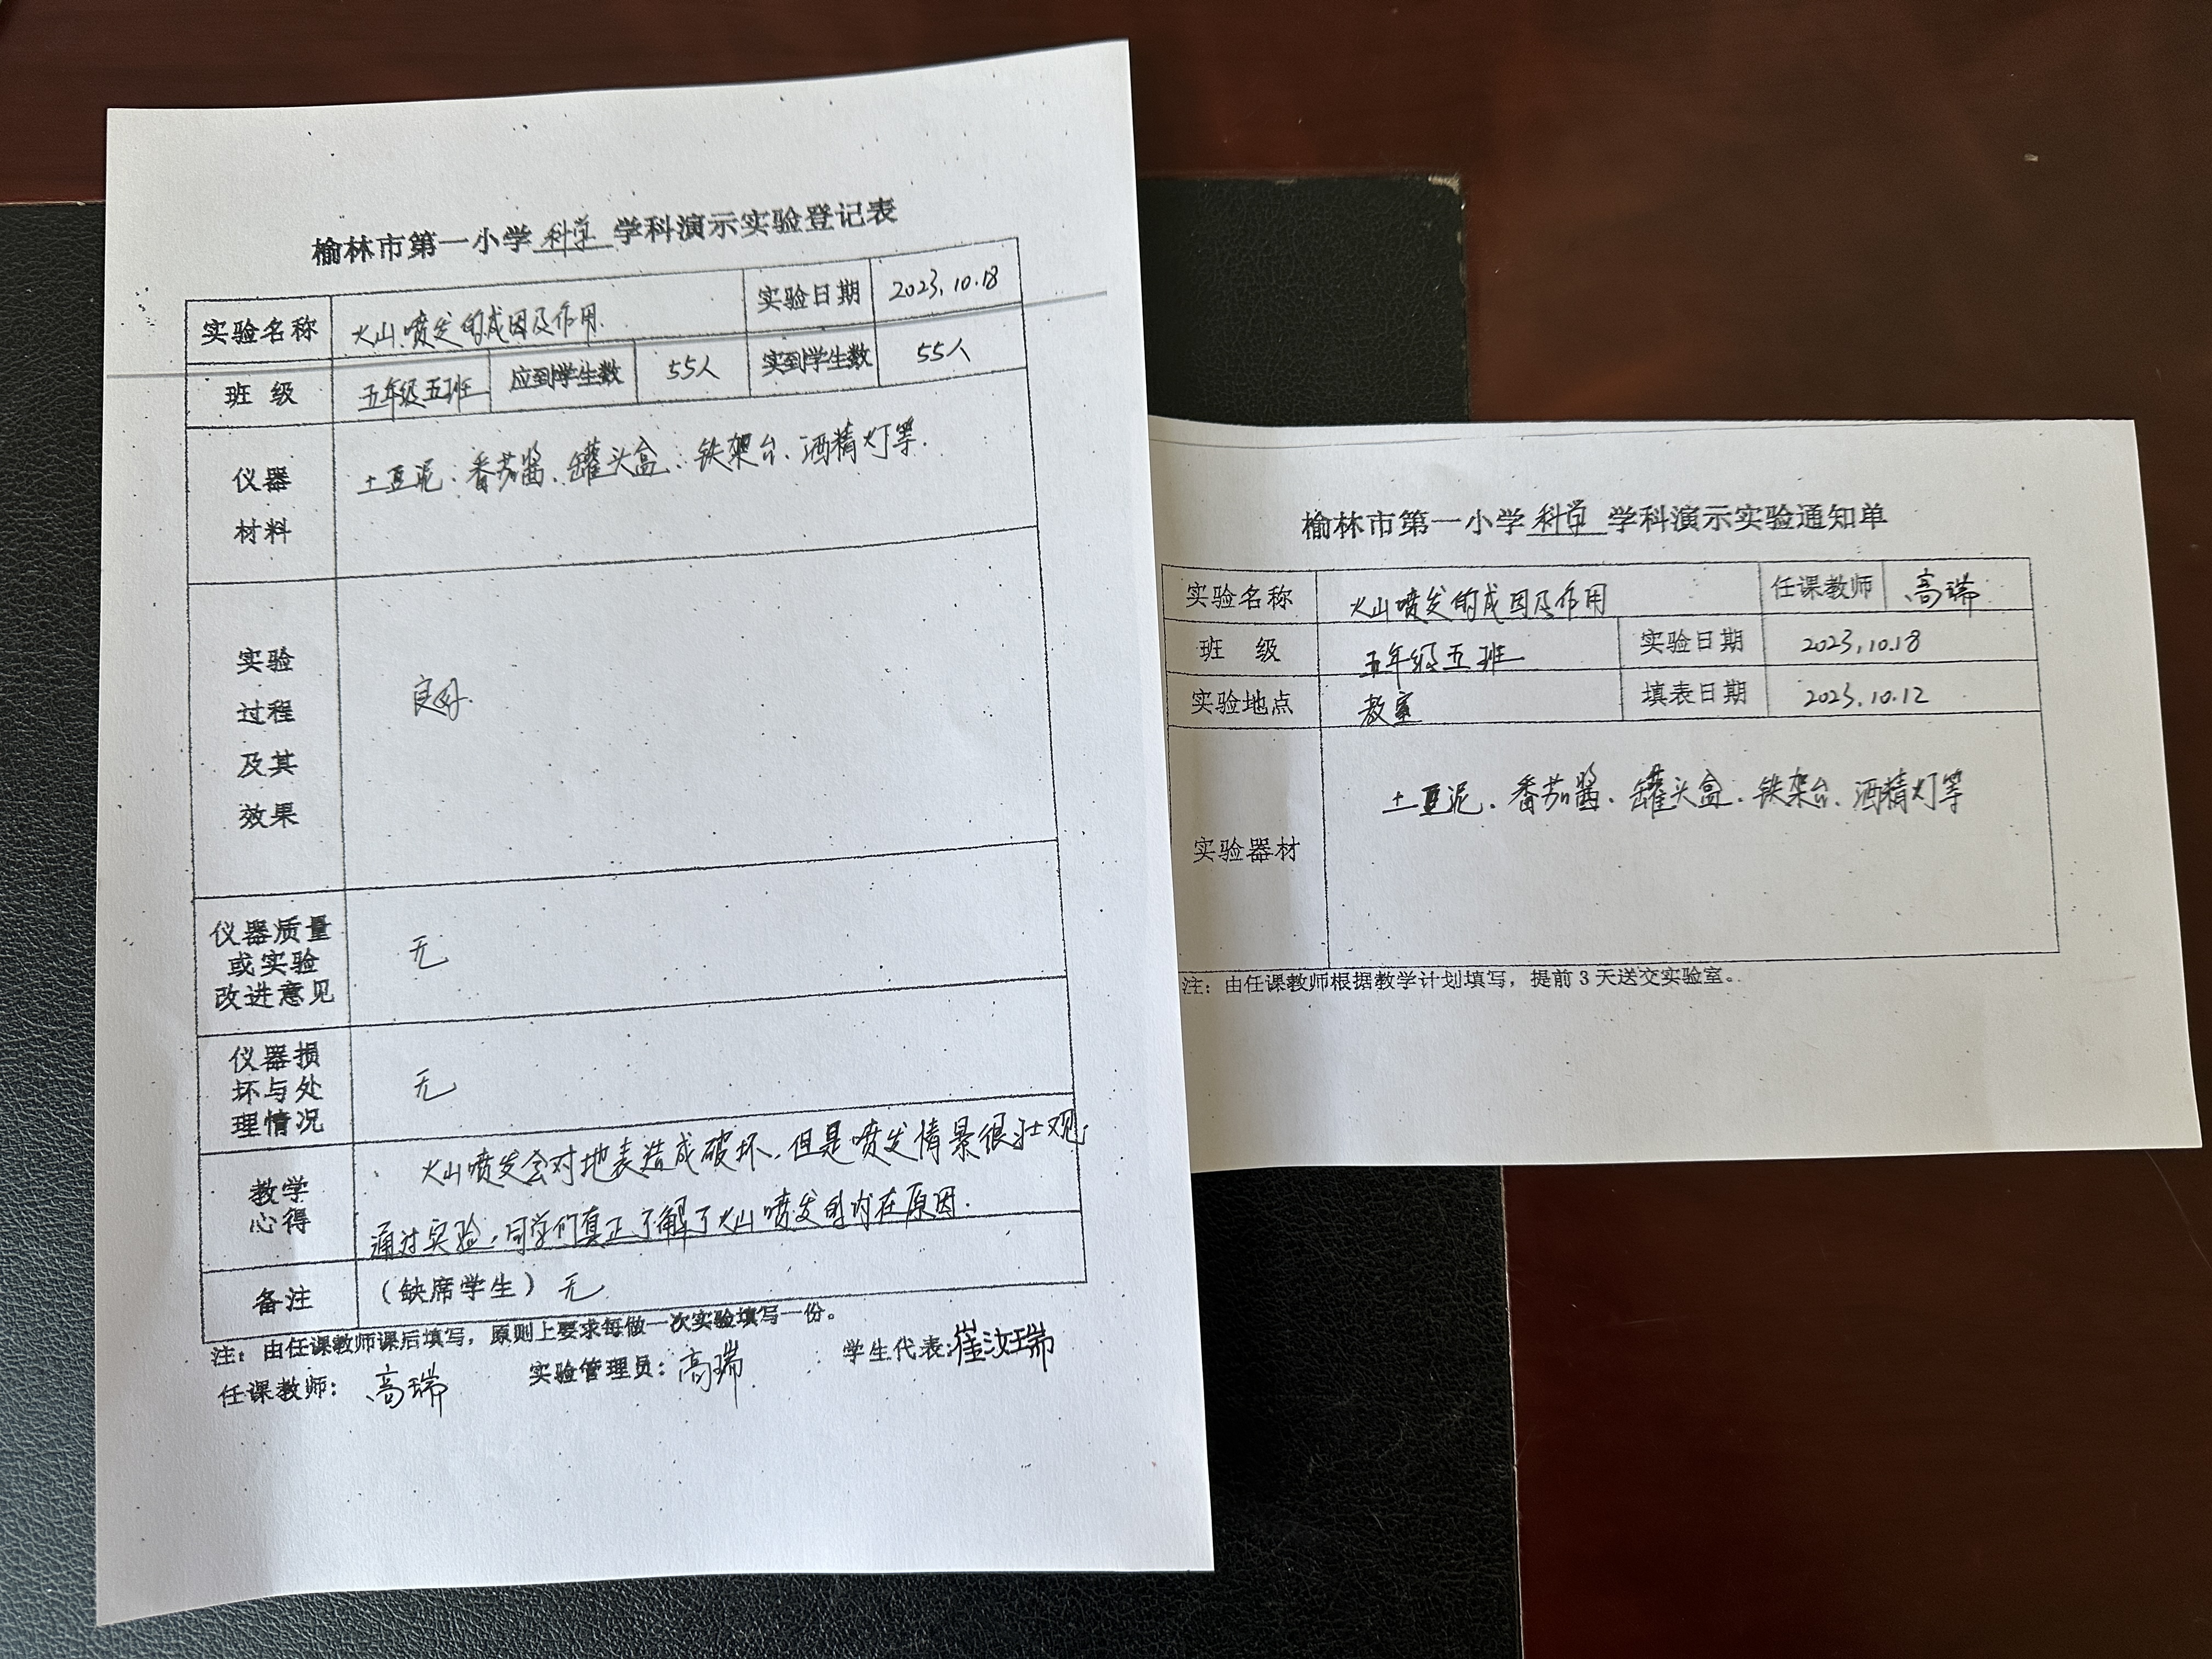 榆林市第一小学 科学 学科演示实验登记表
实验名称 火山喷发的成因及作用. 实验日期 2023.10.18
班 级 五年级五班 应到学生数 55人 实到学生数 55人
仪器 土豆泥、番茄酱、罐头盒、铁架台、酒精灯等.
材料
实验
过程 良好.
及其
效果
仪器质量
或实验 无
改进意见
仪器损
坏与处 无
理情况
火山喷发会对地表造成破坏,但是喷发情景很壮观,
教学
心得
通过实验,同学们真正了解了火山喷发的内在原因.
备注 (缺席学生) 无
注:由任课教师课后填写,原则上要求每做一次实验填写一份。
任课教师: 高瑞 实验管理员: 高瑞 学生代表: 崔汝瑞
榆林市第一小学 科学 学科演示实验通知单
实验名称 火山喷发的成因及作用 任课教师 高瑞
班 级 五年级五班 实验日期 2023.10.18
实验地点 教室 填表日期 2023.10.12
土豆泥、番茄酱、罐头盒、铁架台、酒精灯等
实验器材
注:由任课教师根据教学计划填写,提前3天送交实验室。